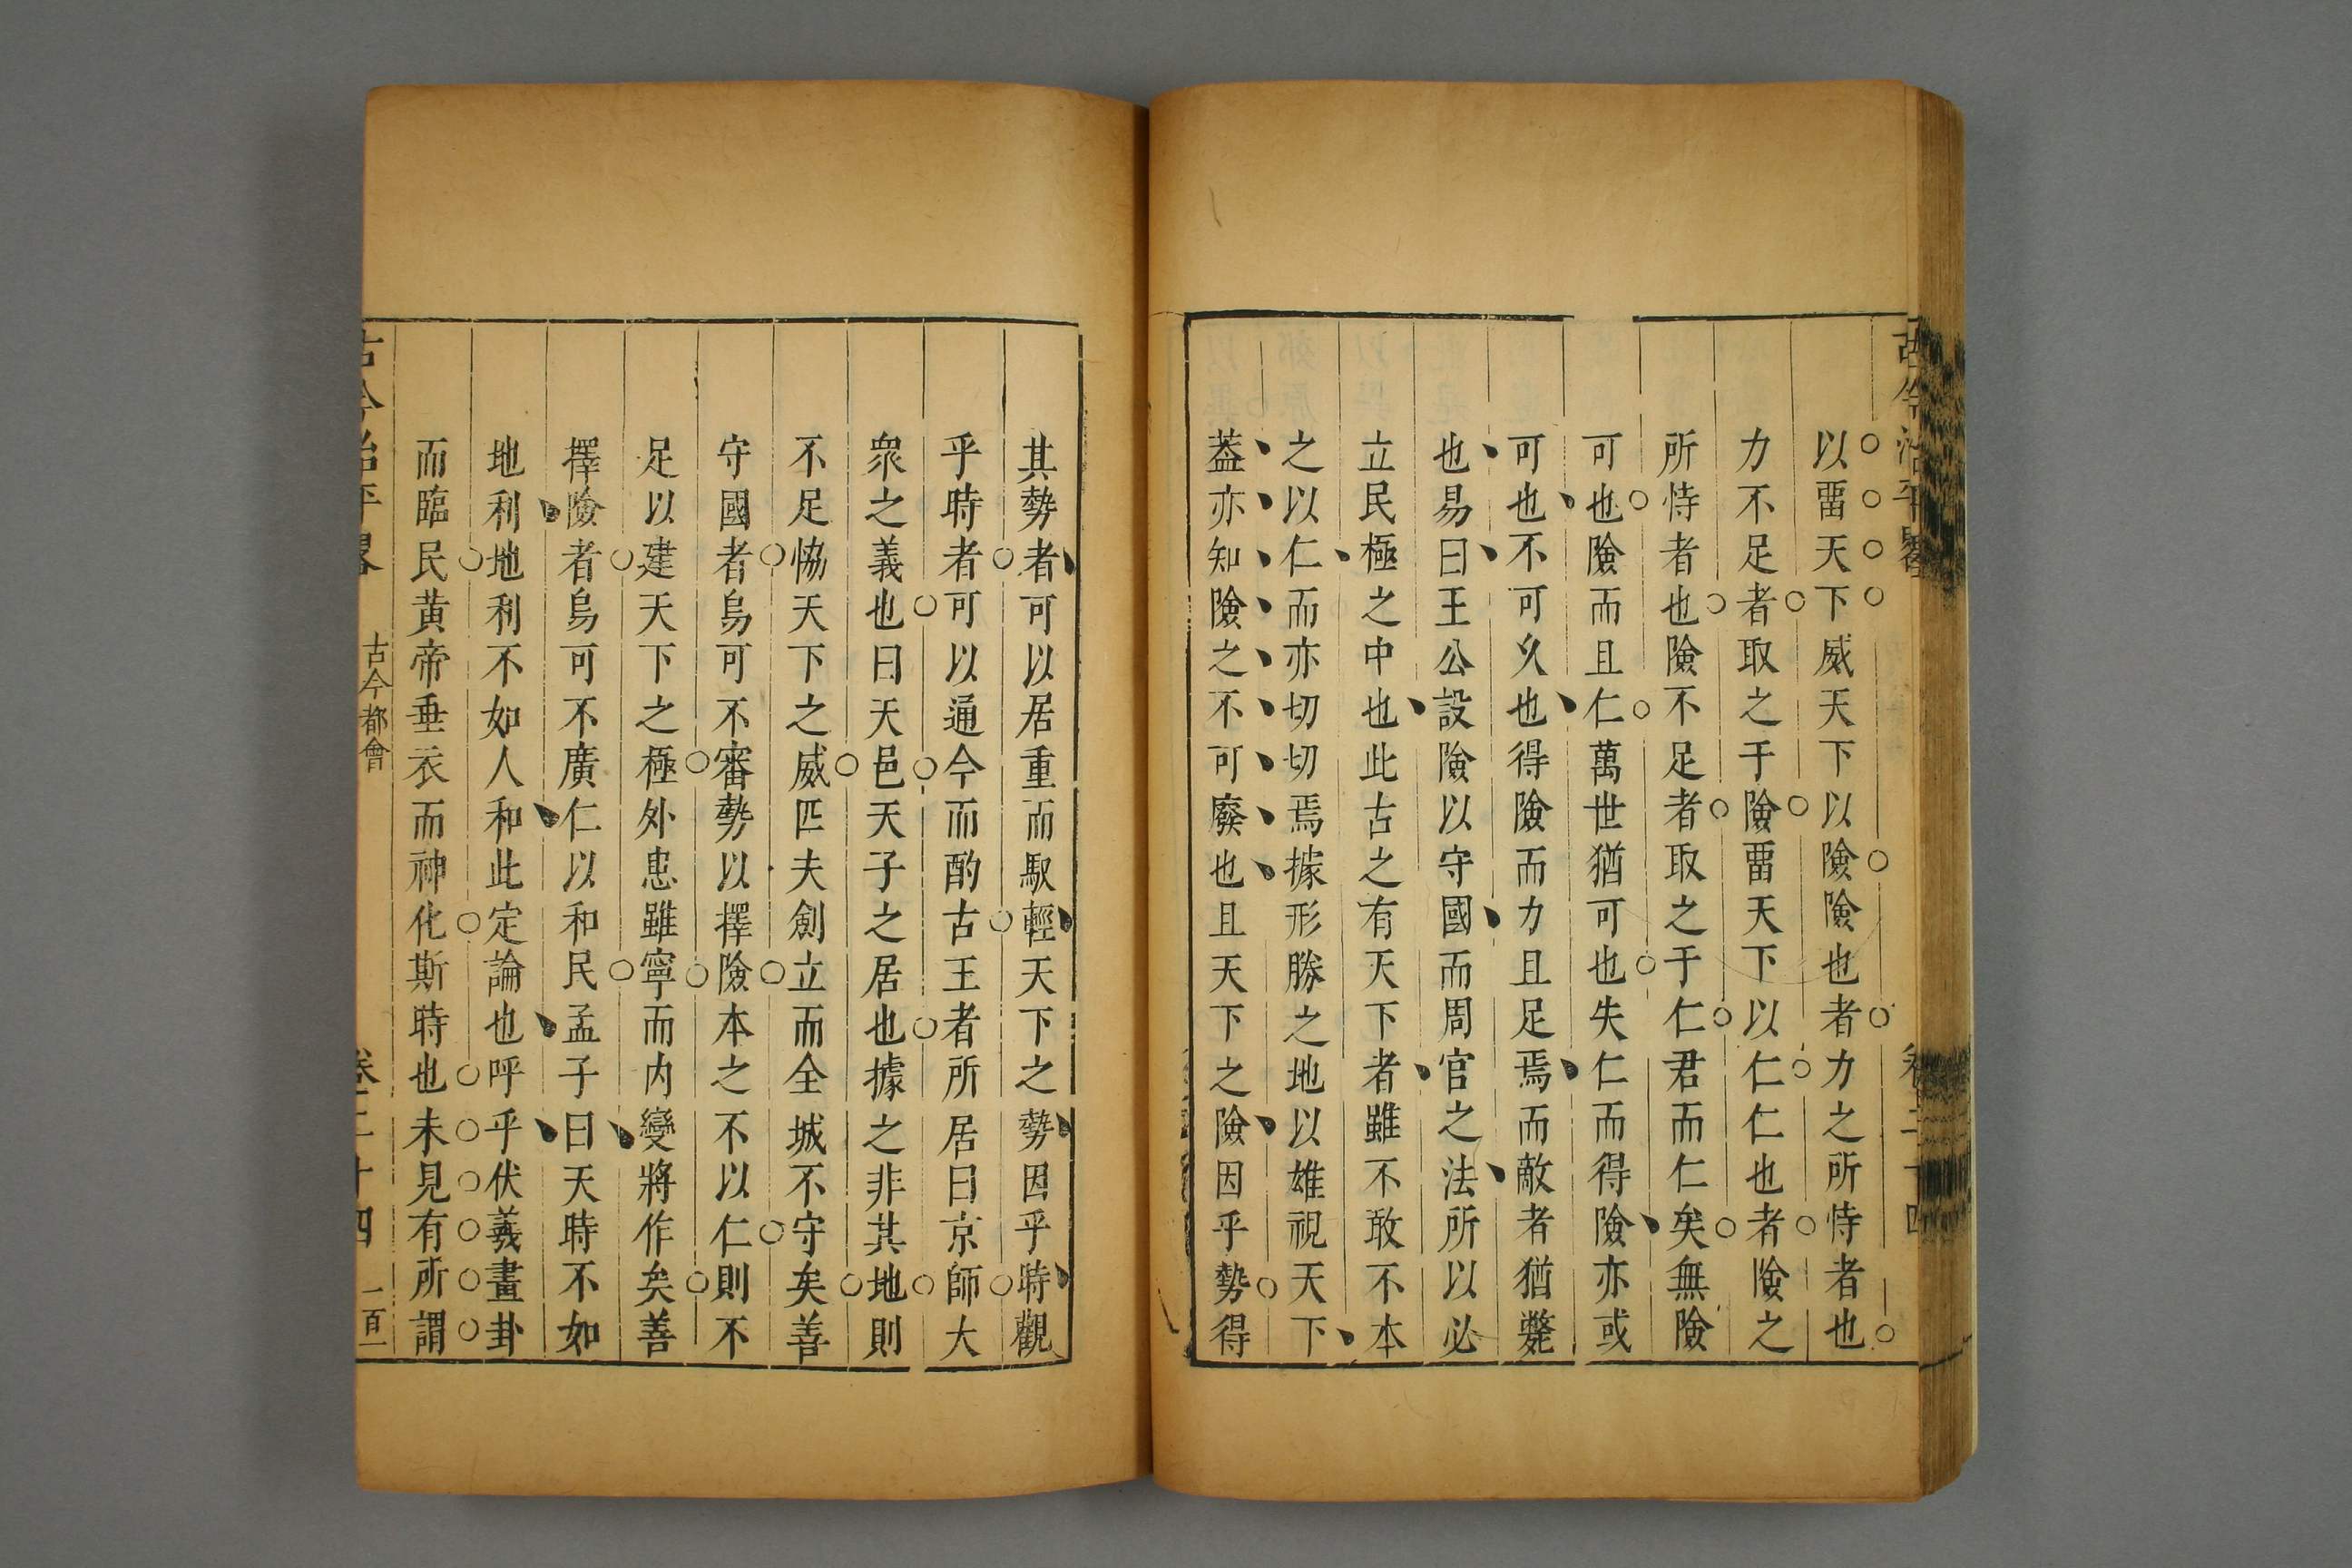 以畱天下威天下以險險也者力之所恃者也
力不足者取之于險畱天下以仁仁也者險之
所恃者也險不足者取之于仁君而仁矣無險
可也險而且仁萬世猶可也失仁而得險亦或
可也不可久也得險而力且足焉而敵者猶斃
也易曰王公設險以守國而周官之法所以必
立民極之中也此古之有天下者雖不敢不本
之以仁而亦切切焉據形勝之地以雄視天下
葢亦知險之不可廢也且天下之險因乎勢得
其勢者可以居重而馭輕天下之勢因乎時觀
乎時者可以通今而酌古王者所居曰京師大
衆之義也曰天邑天子之居也據之非其地則
不足恊天下之威匹夫創立而全城不守矣善
守國者烏可不審勢以擇險本之不以仁則不
足以建天下之極外患雖寧而内變將作矣善
擇險者烏可不廣仁以和民孟子曰天時不如
地利地利不如人和此定論也呼乎伏羲畫卦
而臨民黄帝垂衣而神化斯時也未見有所謂
古今治平畧 古今都會 卷二十四 一百一